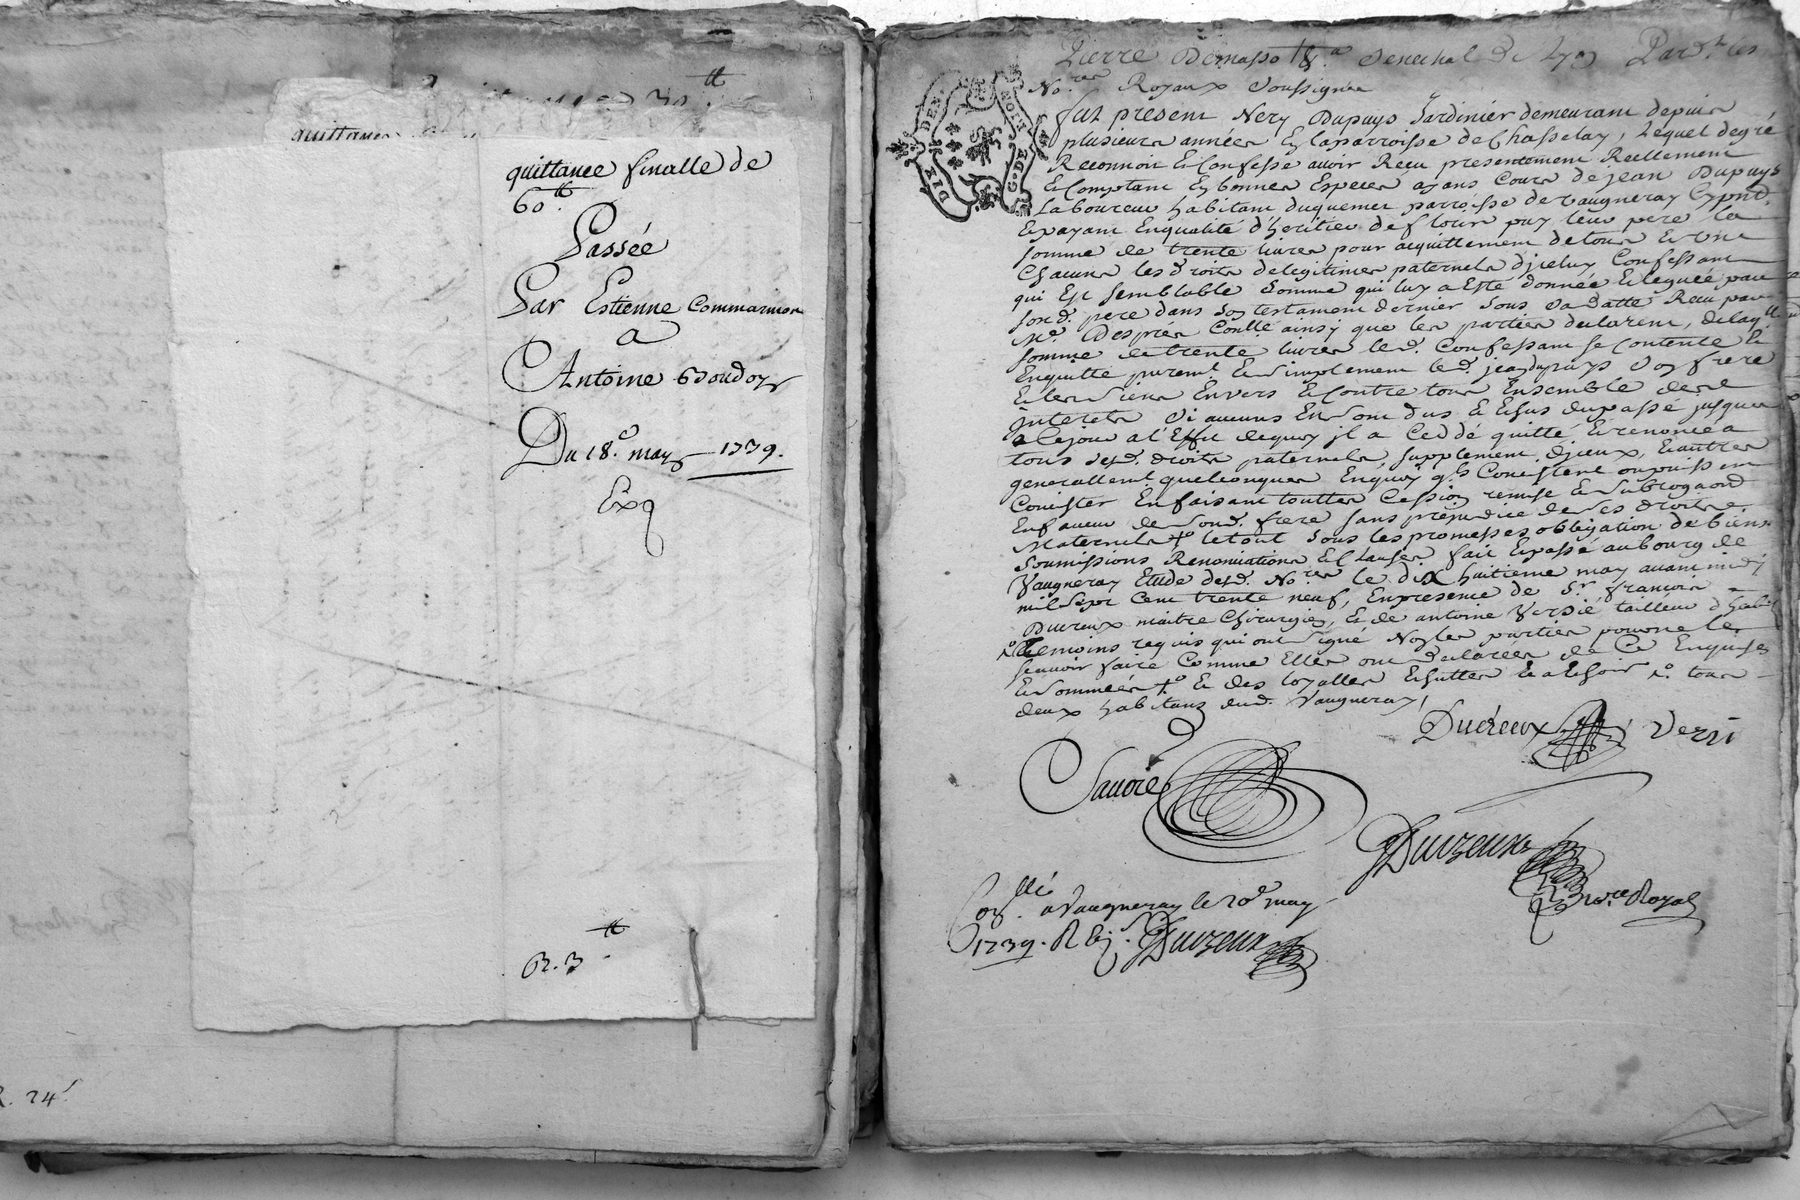 quittance
quittance finalle de
60.ᵗᵗ
Passée
Par Estienne Commarmon
a
Antoine Goudoy
Du 18.e may 1739.
Exp
R. 3.ᵗᵗ
R. 24
DEN.
G. DE
DIX
Pierre Senechal de Lyon Par.t les
No.res Royaux soussignés
fut present Nery Dupuys Jardinier demeurant depuis
plusieurs années En la parroisse de Chasselay, Lequel de gré
Reconnoit & Confesse avoir Receu presentement Reellement
& Comptant En bonnes Especes ayans Cours de jean Dupuys
Laboureur habitant parroisse de Vaugneray Cy pnt.
& payant En qualité d'heritier de fleury puy leur pere la
somme de trente livres pour acquittement de tous & Un
Chacuns les droits de legitimes paternels d'jceluy Confessant
qui Est semblable somme qui luy a Esté donnée & leguée par
son d. pere dans son testament dernier sous sa datte Receu par
M.e Desprès Con.llé ainsy que les parties declarent, de laq.lle
somme de trente livres led. Confessant se Contente &
En quitte purem.t & simplement led. jean dupuys son frere
& les siens Envers & Contre tous Ensemble des
jnterets si aucuns En sont dus & Echus du passé jusques
a Ce jour a l'Effet de quoy jl a Ceddé quitté & renoncé a
tous sesd. droits paternels, supplement d'jceux, & autres
generallem.t quelconques En quoy q.ls Consistent ou puissent
Consister En faisant touttes Cession remise & subrogaon
En faveur de sond. frere sans prejudice de ses droits
Maternels le tout sous les promesses obligation de biens
soumissions Renonciations & Clauses fait & passé au bourg de
Vaugneray Etude desd. No.res le dix huitieme may avant midy
mil sept Cent trente neuf, En presence de S.r françois
Ducreux maitre Chirurgien, & de antoine Versié tailleur d'habit
temoins requis qui ont signé Non les parties pour ne le
scavoir faire Comme Elles ont declarées de Ce Enquises
& sommées & des loyalles tous
deux habitans dud. Vaugneray,
Ducreux Verzi
Savoie
Duvzeux
No.re Royal
Con.llé a Vaugneray le 20e may
1739. R Duvzeux